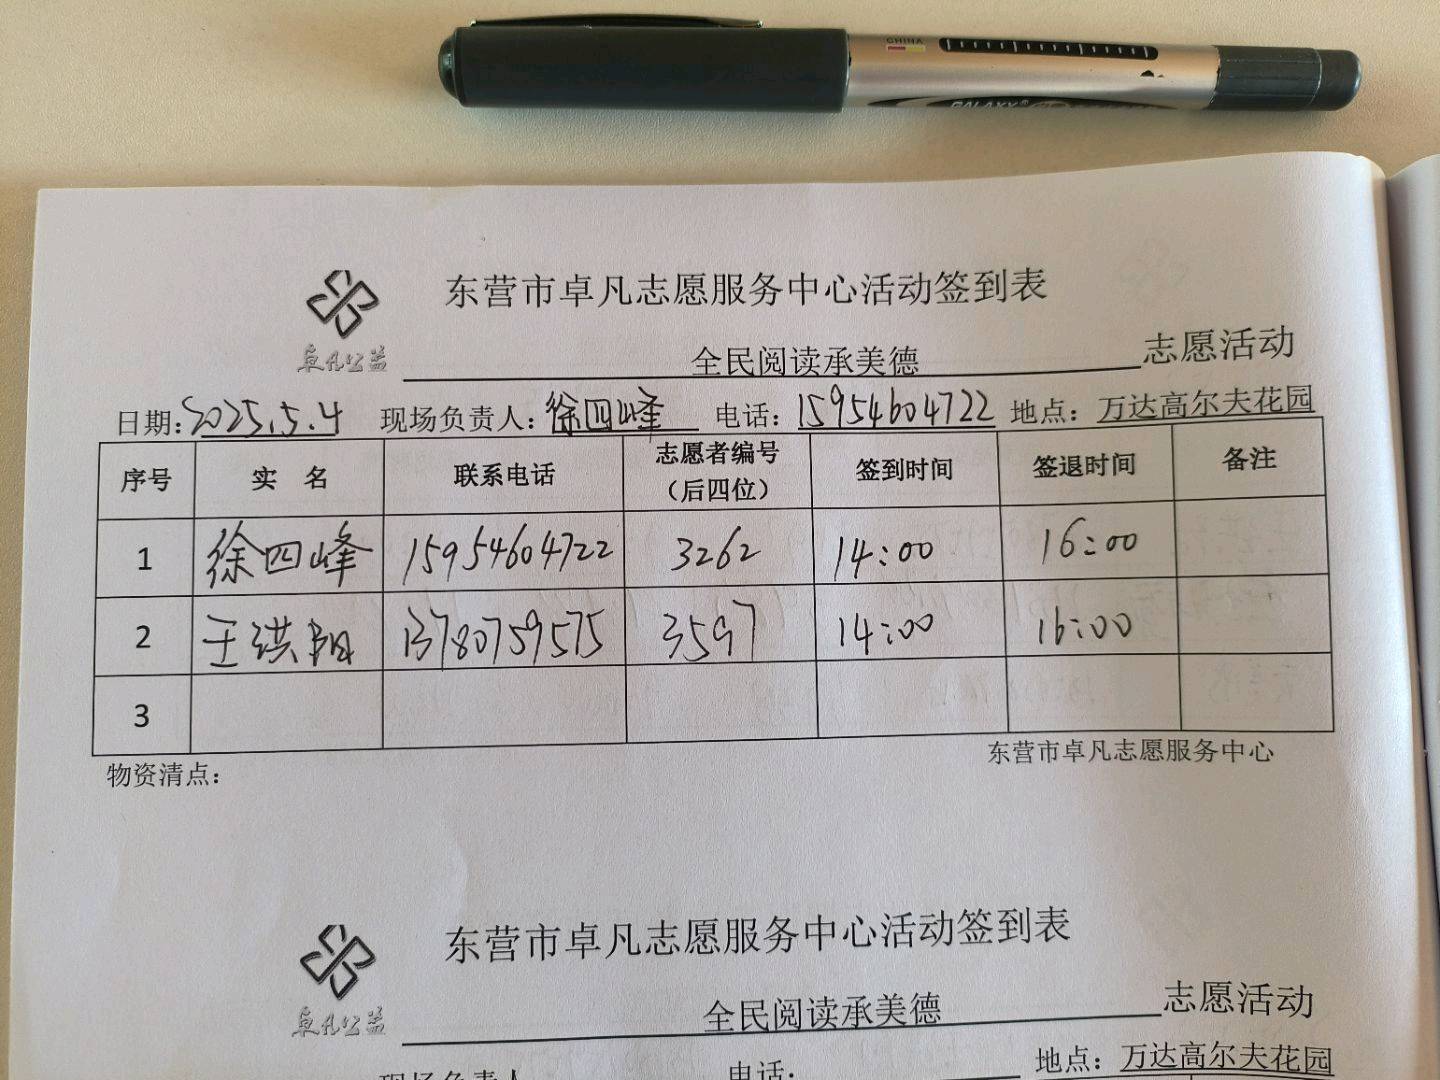 CHINA
GALAXY®
东营市卓凡志愿服务中心活动签到表
卓凡公益
全民阅读承美德 志愿活动
日期:2025.5.4 现场负责人:徐四峰 电话:15954604722 地点:万达高尔夫花园
序号 实 名 联系电话 志愿者编号(后四位) 签到时间 签退时间 备注
1 徐四峰 15954604722 3262 14:00 16:00
2 王洪阳 13780759575 3597 14:00 16:00
3
物资清点: 东营市卓凡志愿服务中心
东营市卓凡志愿服务中心活动签到表
卓凡公益
全民阅读承美德 志愿活动
现场负责人 电话: 地点:万达高尔夫花园